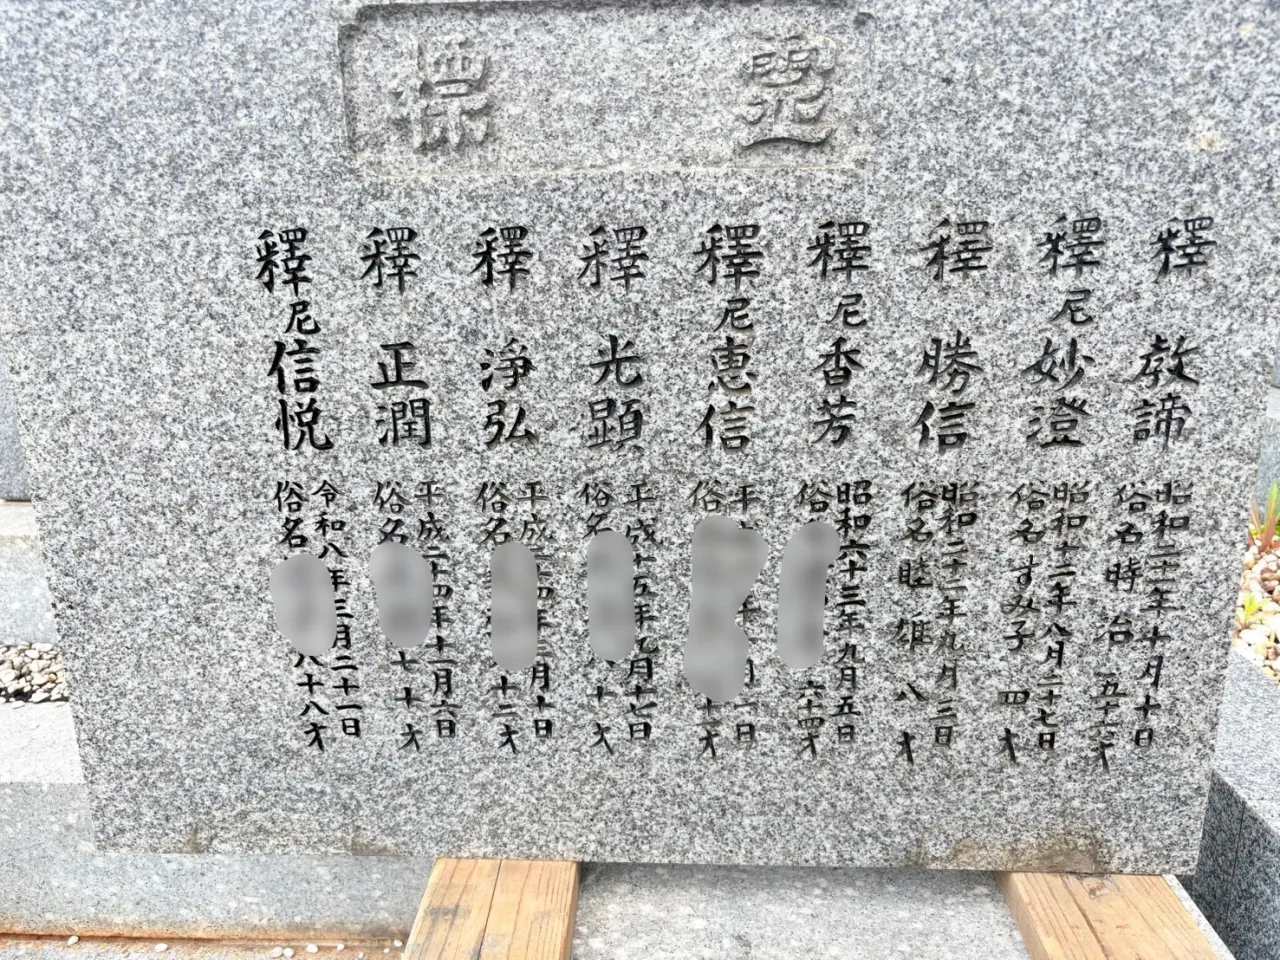 霊標
釋 教諦
昭和二十一年十月十日
俗名 時治 五十六才
釋尼妙澄
昭和十二年八月二十七日
俗名 すみ子 四才
釋 勝信
昭和二十一年九月二日
俗名 睦雄 八才
釋尼香芳
昭和六十三年九月五日
俗 六十四才
釋尼恵信
俗 才
釋 光顕
平成十五年九月十七日
俗名 十才
釋 浄弘
平成 月十日
俗名 十二才
釋 正潤
平成二十四年十一月六日
俗名 七十才
釋尼信悦
令和八年三月二十一日
俗名 八十八才